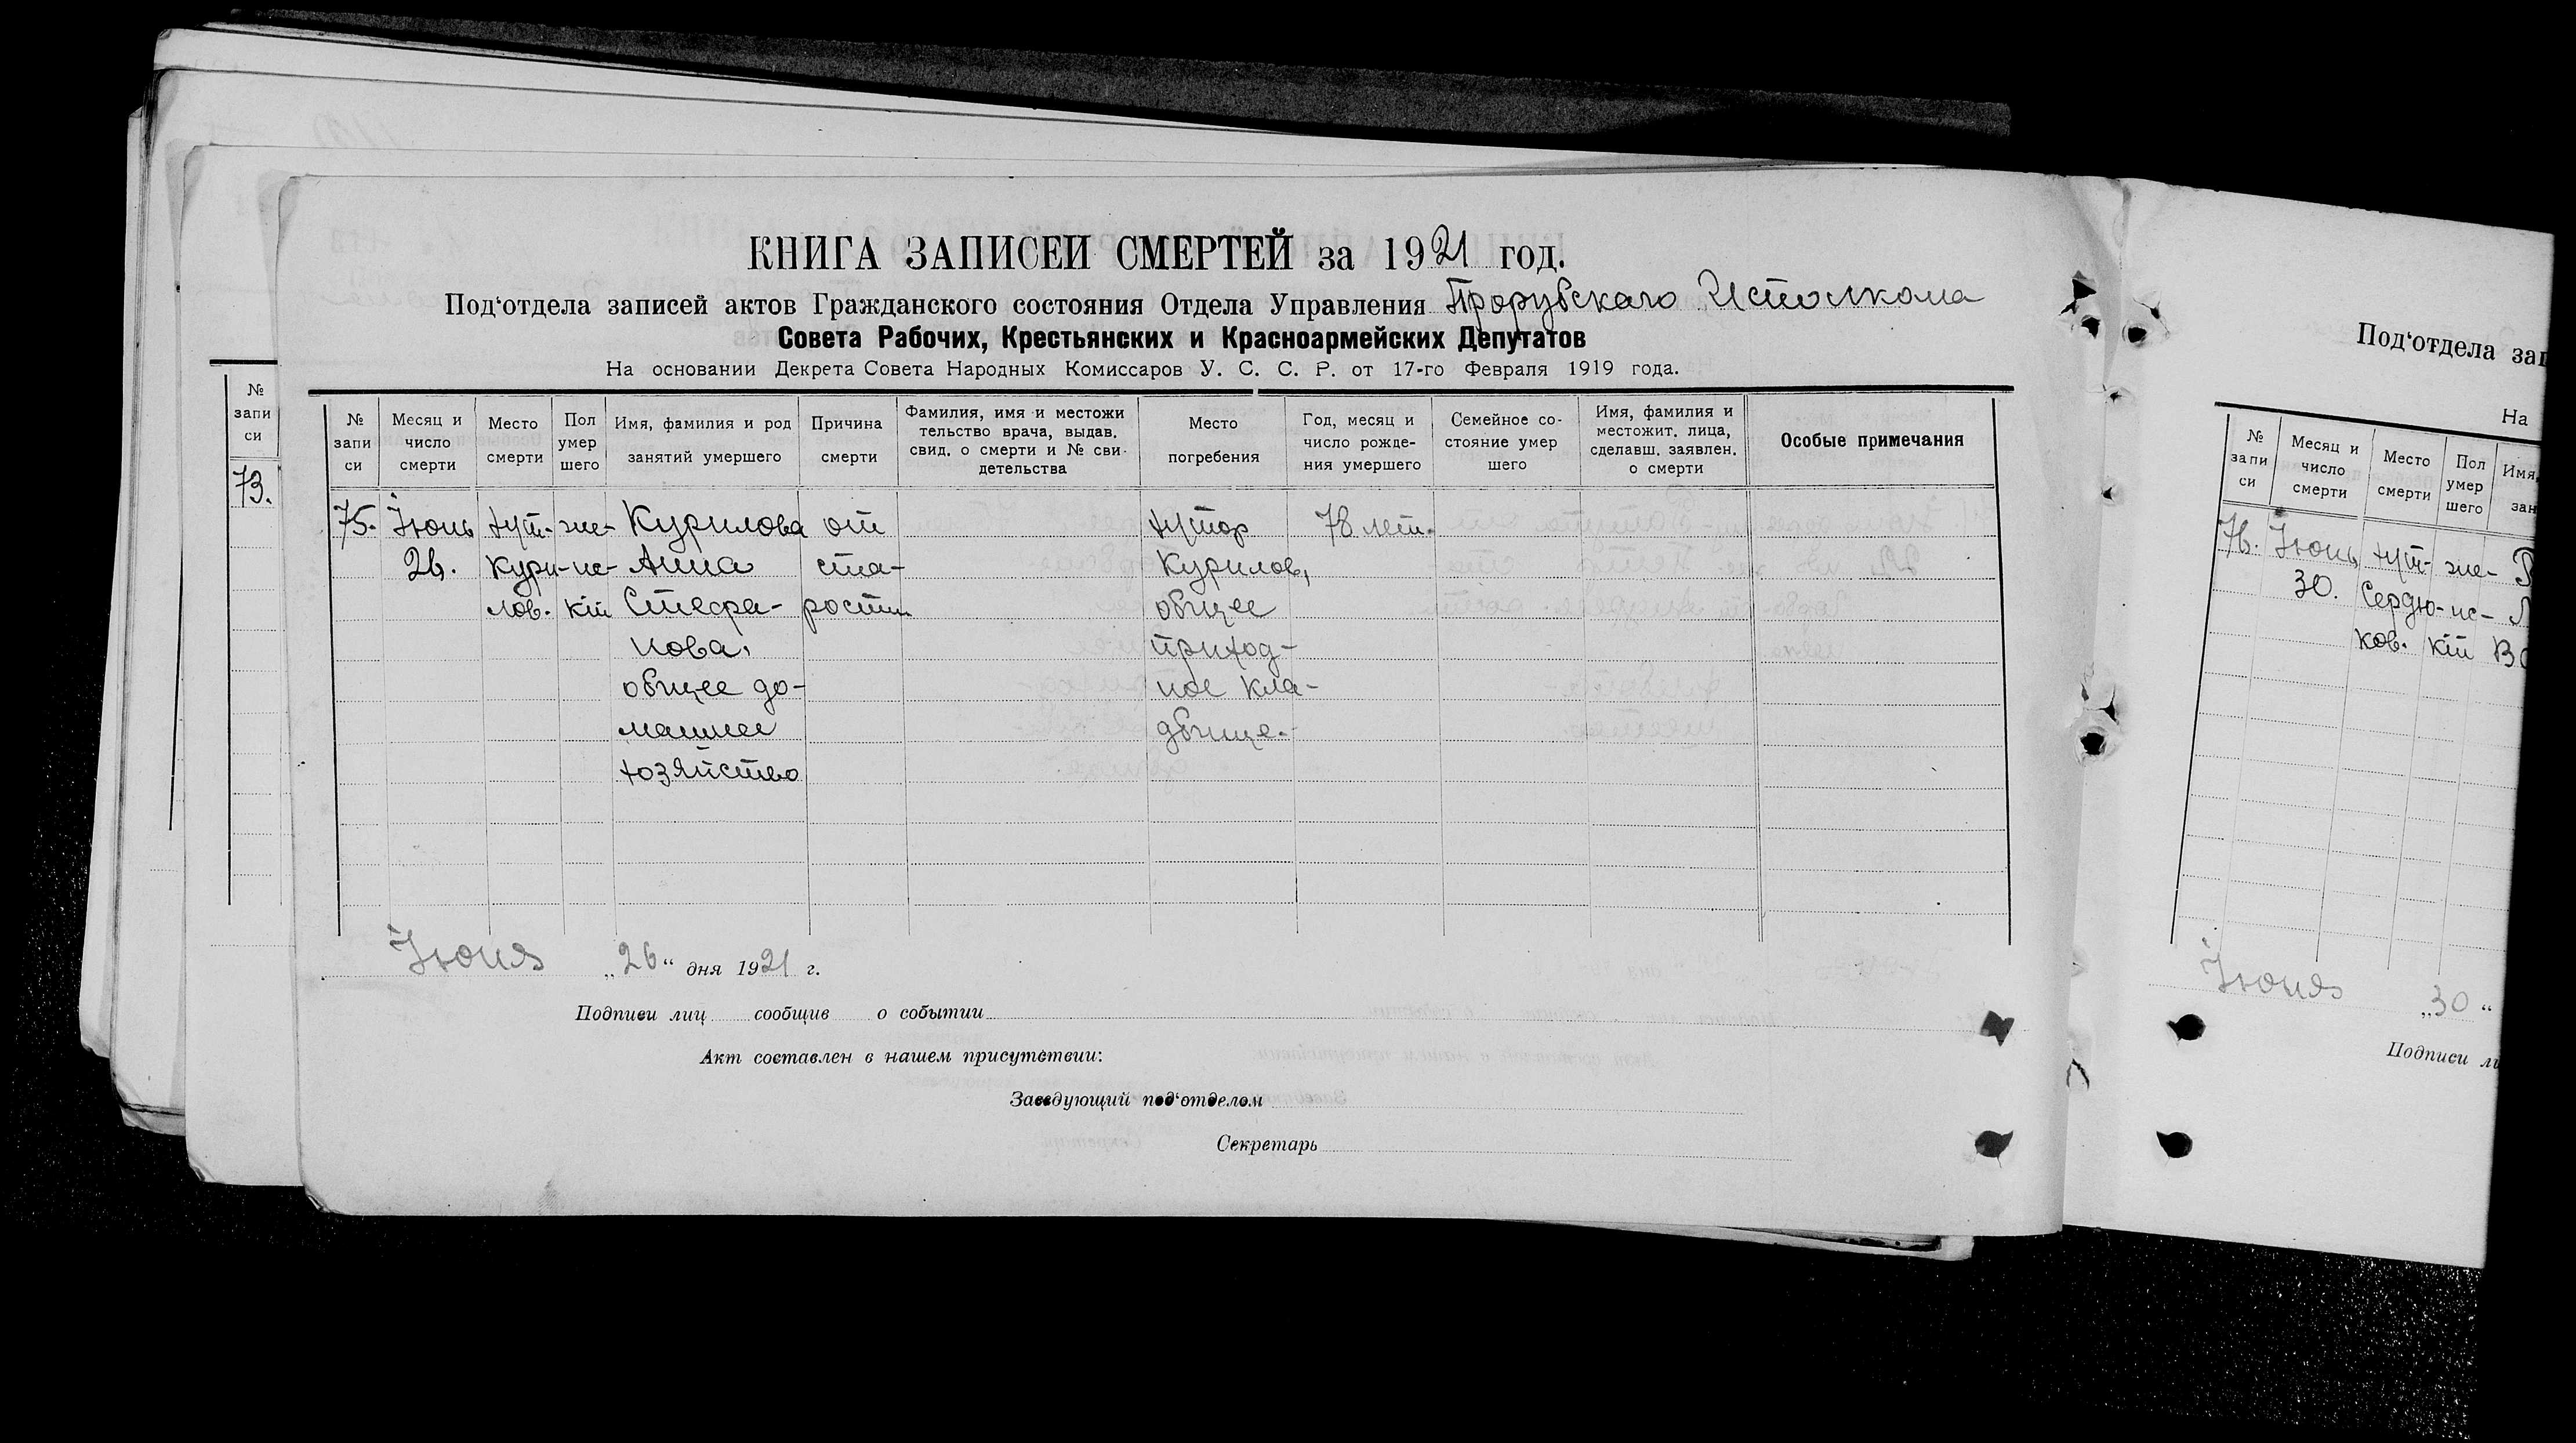 КНИГА ЗАПИСЕЙ СМЕРТЕЙ за 1921 год.
Под‘отдела записей актов Гражданского состояния Отдела Управления Прорубскаго Исполкома
Совета Рабочих, Крестьянских и Красноармейских Депутатов
На основании Декрета Совета Народных Комиссаров У. С. С. Р. от 17-го Февраля 1919 года.
№ запи си
Месяц и число смерти
Место смерти
Пол умер шего
Имя, фамилия и род занятий умершего
Причина смерти
Фамилия, имя и местожи тельство врача, выдав. свид. о смерти и № сви- детельства
Место погребения
Год, месяц и число рожде- ния умершего
Семейное со- стояние умер шего
Имя, фамилия и местожит. лица, сделавш. заявлен. о смерти
Особые примечания
75. Іюнь хут- же- Курилова от хутор 78 лет.
26. Кури- нс- Анна ста- Курилов,
лов. кій Стефа- рости общее
нова, приход-
общее до- ное кла-
машнее дбище.
хозяйство
Іюня „26“ дня 1921 г.
Подписи лиц сообщив о событии
Акт составлен в нашем присутствии:
Заведующий под‘отделом
Секретарь
№
запи
си
73.
Под‘отдела зап
На
№ запи си
Месяц и число смерти
Место смерти
Пол умер шего
Имя,
зан
76. Іюнь хут- же-
30. Сердю- нс-
ков. кій
Іюня „30“
Подписи ли